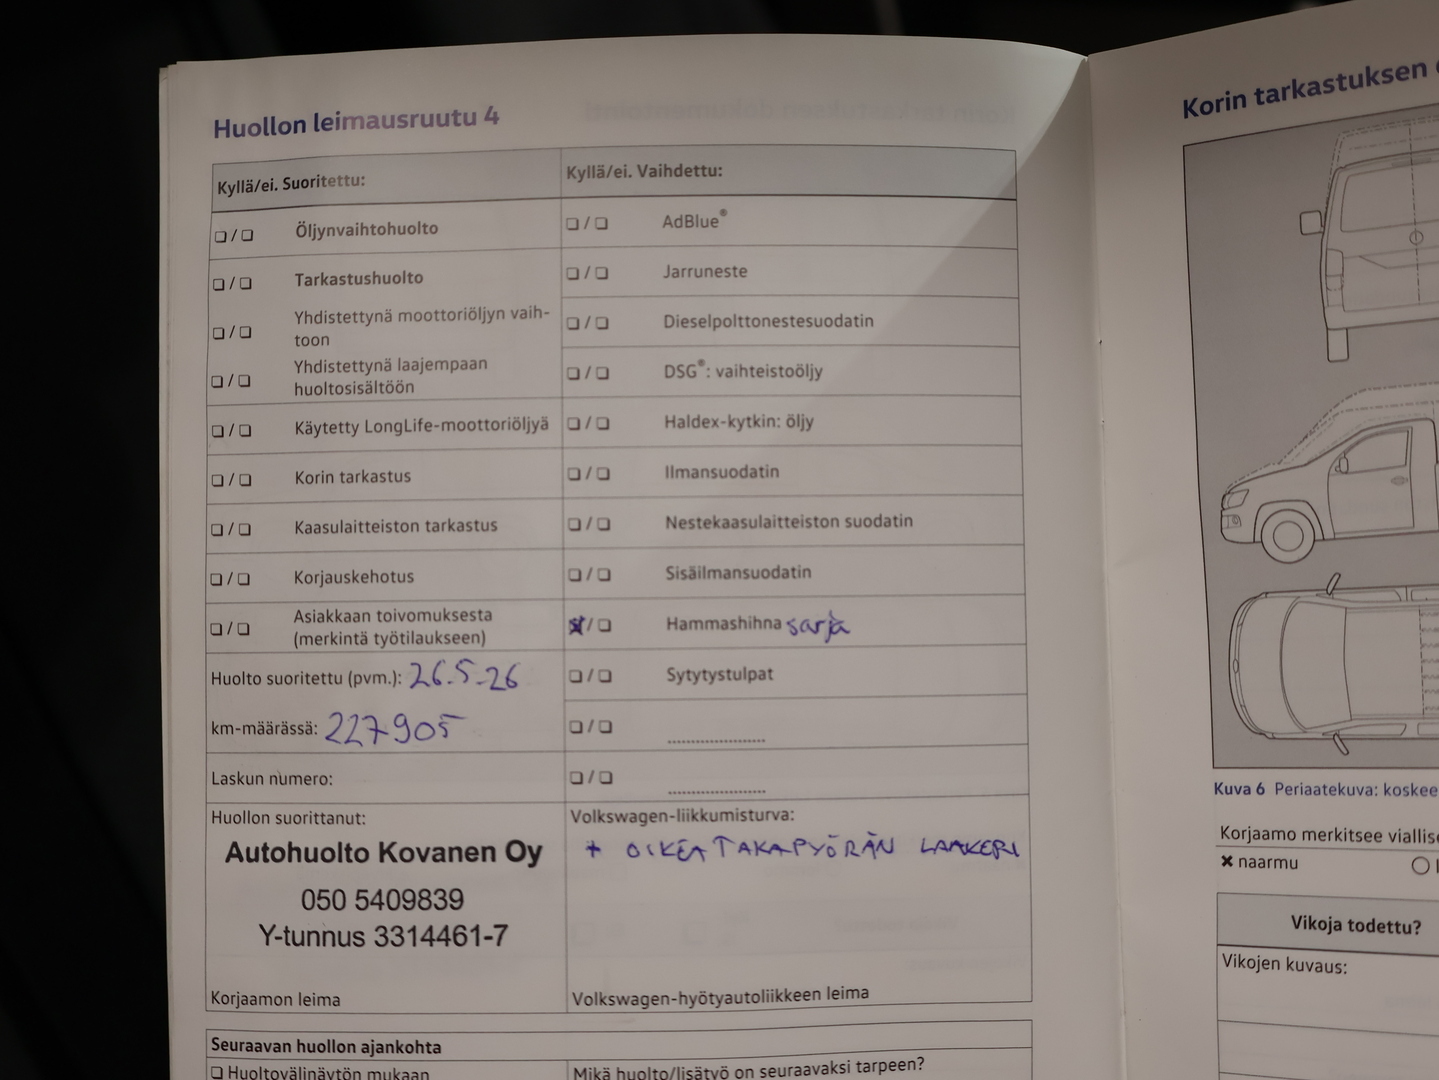 Huollon leimausruutu 4
Kyllä/ei. Suoritettu:
❏ / ❏ Öljynvaihtohuolto
❏ / ❏ Tarkastushuolto
❏ / ❏ Yhdistettynä moottoriöljyn vaih-
toon
❏ / ❏ Yhdistettynä laajempaan
huoltosisältöön
❏ / ❏ Käytetty LongLife-moottoriöljyä
❏ / ❏ Korin tarkastus
❏ / ❏ Kaasulaitteiston tarkastus
❏ / ❏ Korjauskehotus
❏ / ❏ Asiakkaan toivomuksesta
(merkintä työtilaukseen)
Huolto suoritettu (pvm.): 26.5-26
km-määrässä: 227905
Laskun numero:
Huollon suorittanut:
Autohuolto Kovanen Oy
050 5409839
Y-tunnus 3314461-7
Korjaamon leima
Kyllä/ei. Vaihdettu:
❏ / ❏ AdBlue®
❏ / ❏ Jarruneste
❏ / ❏ Dieselpolttonestesuodatin
❏ / ❏ DSG®: vaihteistoöljy
❏ / ❏ Haldex-kytkin: öljy
❏ / ❏ Ilmansuodatin
❏ / ❏ Nestekaasulaitteiston suodatin
❏ / ❏ Sisäilmansuodatin
☒ / ❏ Hammashihna sarja
❏ / ❏ Sytytystulpat
❏ / ❏ ....................
❏ / ❏ ....................
Volkswagen-liikkumisturva:
+ OIKEA TAKAPYÖRÄN LAAKERI
Volkswagen-hyötyautoliikkeen leima
Seuraavan huollon ajankohta
❏ Huoltovälinäytön mukaan
Mikä huolto/lisätyö on seuraavaksi tarpeen?
Korin tarkastuksen
Kuva 6 Periaatekuva: koskee
Korjaamo merkitsee
✖ naarmu
Vikoja todettu?
Vikojen kuvaus: